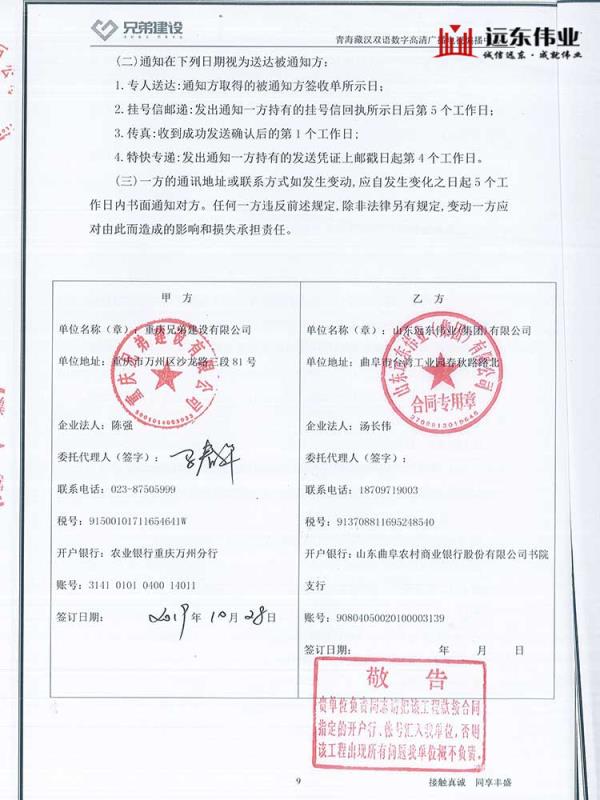 兄弟建设
青海藏汉双语数字高清广播
远东伟业
诚信远东·成就伟业
(二)通知在下列日期视为送达被通知方:
1.专人送达:通知方取得的被通知方签收单所示日;
2.挂号信邮递:发出通知一方持有的挂号信回执所示日后第 5 个工作日;
3.传真:收到成功发送确认后的第 1 个工作日;
4.特快专递:发出通知一方持有的发送凭证上邮戳日起第 4 个工作日。
(三)一方的通讯地址或联系方式如发生变动,应自发生变化之日起 5 个工
作日内书面通知对方。任何一方违反前述规定,除非法律另有规定,变动一方应
对由此而造成的影响和损失承担责任。
甲 方
单位名称(章):重庆兄弟建设有限公司
单位地址:重庆市万州区沙龙路三段 81 号
重庆兄弟建设有限公司
企业法人:陈强
委托代理人(签字):
联系电话:023-87505999
税号:91500101711654641W
开户银行:农业银行重庆万州分行
账号:3141 0101 0400 14011
签订日期: 2019 年 10 月 28 日
乙 方
单位名称(章):山东远东伟业(集团)有限公司
单位地址:曲阜市台湾工业园春秋路路北
山东远东伟业(集团)有限公司
合同专用章
企业法人:汤长伟
委托代理人(签字):
联系电话:18709719003
税号:913708811695248540
开户银行:山东曲阜农村商业银行股份有限公司书院
支行
账号:90804050020100003139
签订日期: 年 月 日
敬 告
贵单位负责同志请把该工程款按合同
指定的开户行、帐号汇入我单位,否则
该工程出现所有问题我单位概不负责。
9
接触真诚 同享丰盛